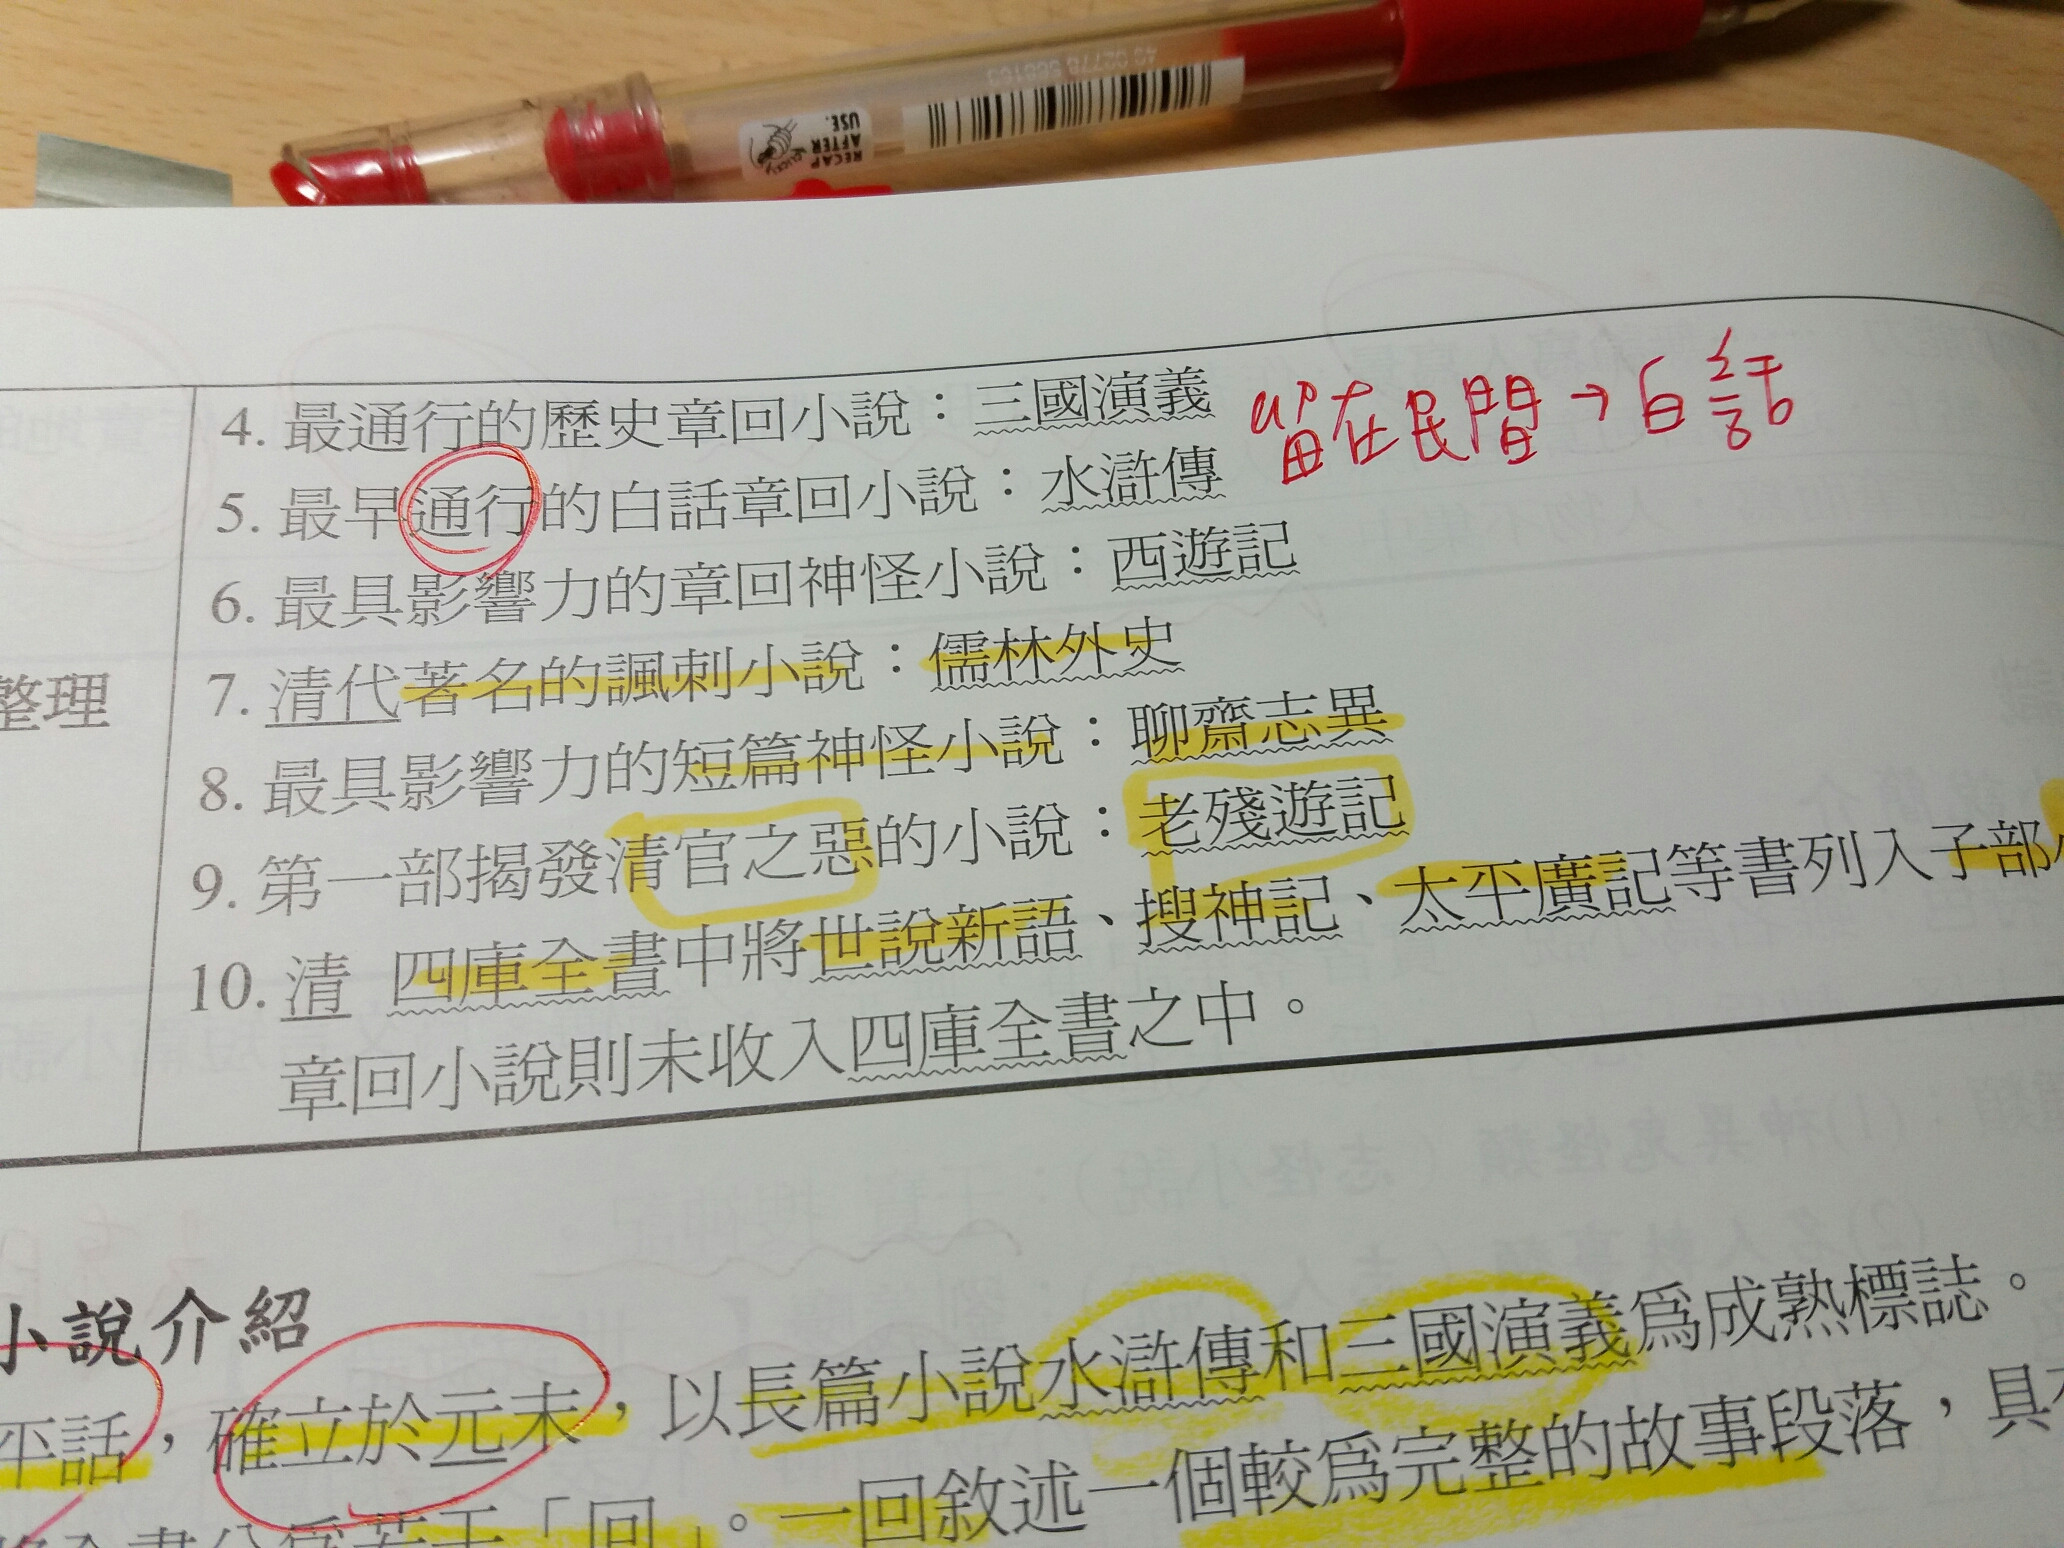 RECAP
AFTER
USE.
CLICK!
4. 最通行的歷史章回小說：三國演義
留在民間→白話
5. 最早通行的白話章回小說：水滸傳
6. 最具影響力的章回神怪小說：西遊記
7. 清代著名的諷刺小說：儒林外史
整理
8. 最具影響力的短篇神怪小說：聊齋志異
9. 第一部揭發清官之惡的小說：老殘遊記
10. 清 四庫全書中將世說新語、搜神記、太平廣記等書列入子部
章回小說則未收入四庫全書之中。
小說介紹
平話，確立於元末，以長篇小說水滸傳和三國演義為成熟標誌。
全書分為若干「回」。一回敘述一個較為完整的故事段落，具